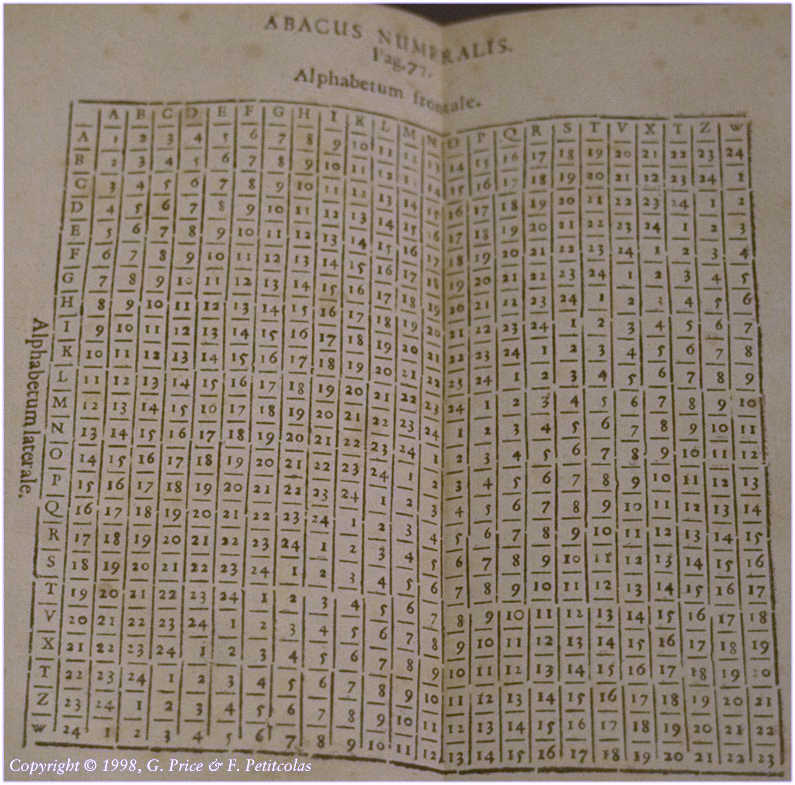 ABACUS NUMERALIS.
Pag. 77.
Alphabetum frontale.
A B C D E F G H I K L M N O P Q R S T V X T Z W
A 1 2 3 4 5 6 7 8 9 10 11 12 13 14 15 16 17 18 19 20 21 22 23 24
B 2 3 4 5 6 7 8 9 10 11 12 13 14 15 16 17 18 19 20 21 12 23 24 1
C 3 4 5 6 7 8 9 10 11 12 13 14 15 16 17 18 19 20 21 22 23 24 1 2
D 4 5 6 7 8 9 10 11 12 13 14 15 16 17 18 19 20 21 22 23 24 1 2 3
E 5 6 7 8 9 10 11 12 13 14 15 16 17 18 19 20 21 22 23 24 1 2 3 4
F 6 7 8 9 10 11 12 13 14 15 16 17 18 19 20 21 22 23 24 1 2 3 4 5
G 7 8 9 10 11 12 13 14 15 16 17 18 19 20 21 22 23 24 1 2 3 4 5 6
H 8 9 10 11 12 13 14 15 16 17 18 19 20 21 22 23 24 1 2 3 4 5 6 7
I 9 10 11 12 13 14 15 16 17 18 19 20 21 22 23 24 1 2 3 4 5 6 7 8
K 10 11 12 13 14 15 16 17 18 19 20 21 22 23 24 1 2 3 4 5 6 7 8 9
L 11 12 13 14 15 16 17 18 19 20 21 22 23 24 1 2 3 4 5 6 7 8 9 10
M 12 13 14 15 16 17 18 19 20 21 22 23 24 1 2 3 4 5 6 7 8 9 10 11
N 13 14 15 16 17 18 19 20 21 22 23 24 1 2 3 4 5 6 7 8 9 10 11 12
O 14 15 16 17 18 19 20 21 22 23 24 1 2 3 4 5 6 7 8 9 10 11 12 13
P 15 16 17 18 19 20 21 22 23 24 1 2 3 4 5 6 7 8 9 10 11 12 13 14
Q 16 17 18 19 20 21 22 23 24 1 2 3 4 5 6 7 8 9 10 11 12 13 14 15
R 17 18 19 20 21 22 23 24 1 2 3 4 5 6 7 8 9 10 11 12 13 14 15 16
S 18 19 20 21 22 23 24 1 2 3 4 5 6 7 8 9 10 11 12 13 14 15 16 17
T 19 20 21 22 23 24 1 2 3 4 5 6 7 8 9 10 11 12 13 14 15 16 17 18
V 20 21 22 23 24 1 2 3 4 5 6 7 8 9 10 11 12 13 14 15 16 17 18 19
X 21 22 23 24 1 2 3 4 5 6 7 8 9 10 11 12 13 14 15 16 17 18 19 20
T 22 23 24 1 2 3 4 5 6 7 8 9 10 11 12 13 14 15 16 17 18 19 20 21
Z 23 24 1 2 3 4 5 6 7 8 9 10 11 12 13 14 15 16 17 18 19 20 21 22
w 24 1 2 3 4 5 6 7 8 9 10 11 12 13 14 15 16 17 18 19 20 21 22 23
Alphabetum laterale.
Copyright © 1998, G. Price & F. Petitcolas